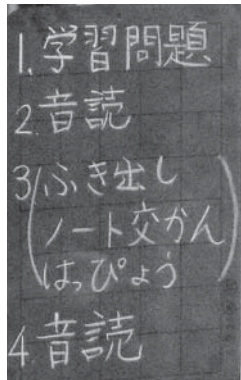 1.学習問題
2.音読
3(ふき出し
ノート交かん
はっぴょう)
4.音読